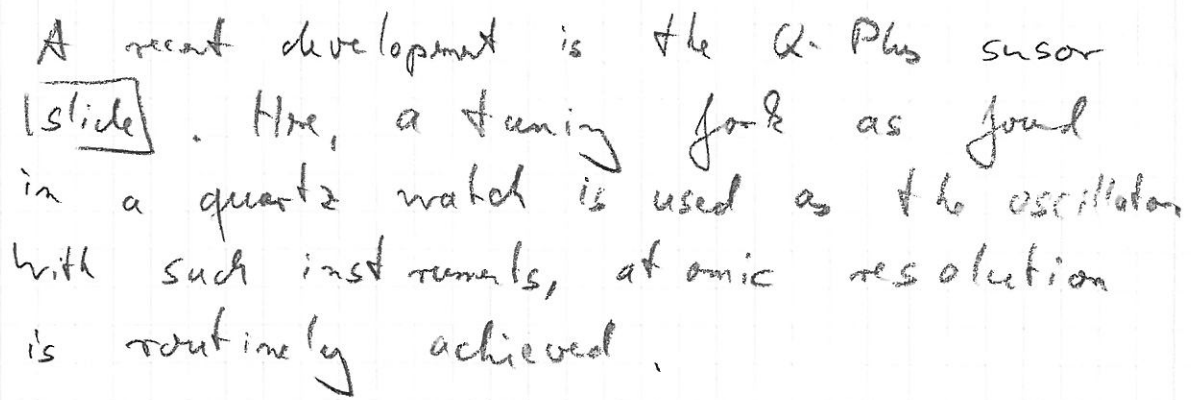 A recent development is the Q-Plus sensor
[slide]. Here, a tuning fork as found
in a quartz watch is used as the oscillator
With such instruments, atomic resolution
is routinely achieved.